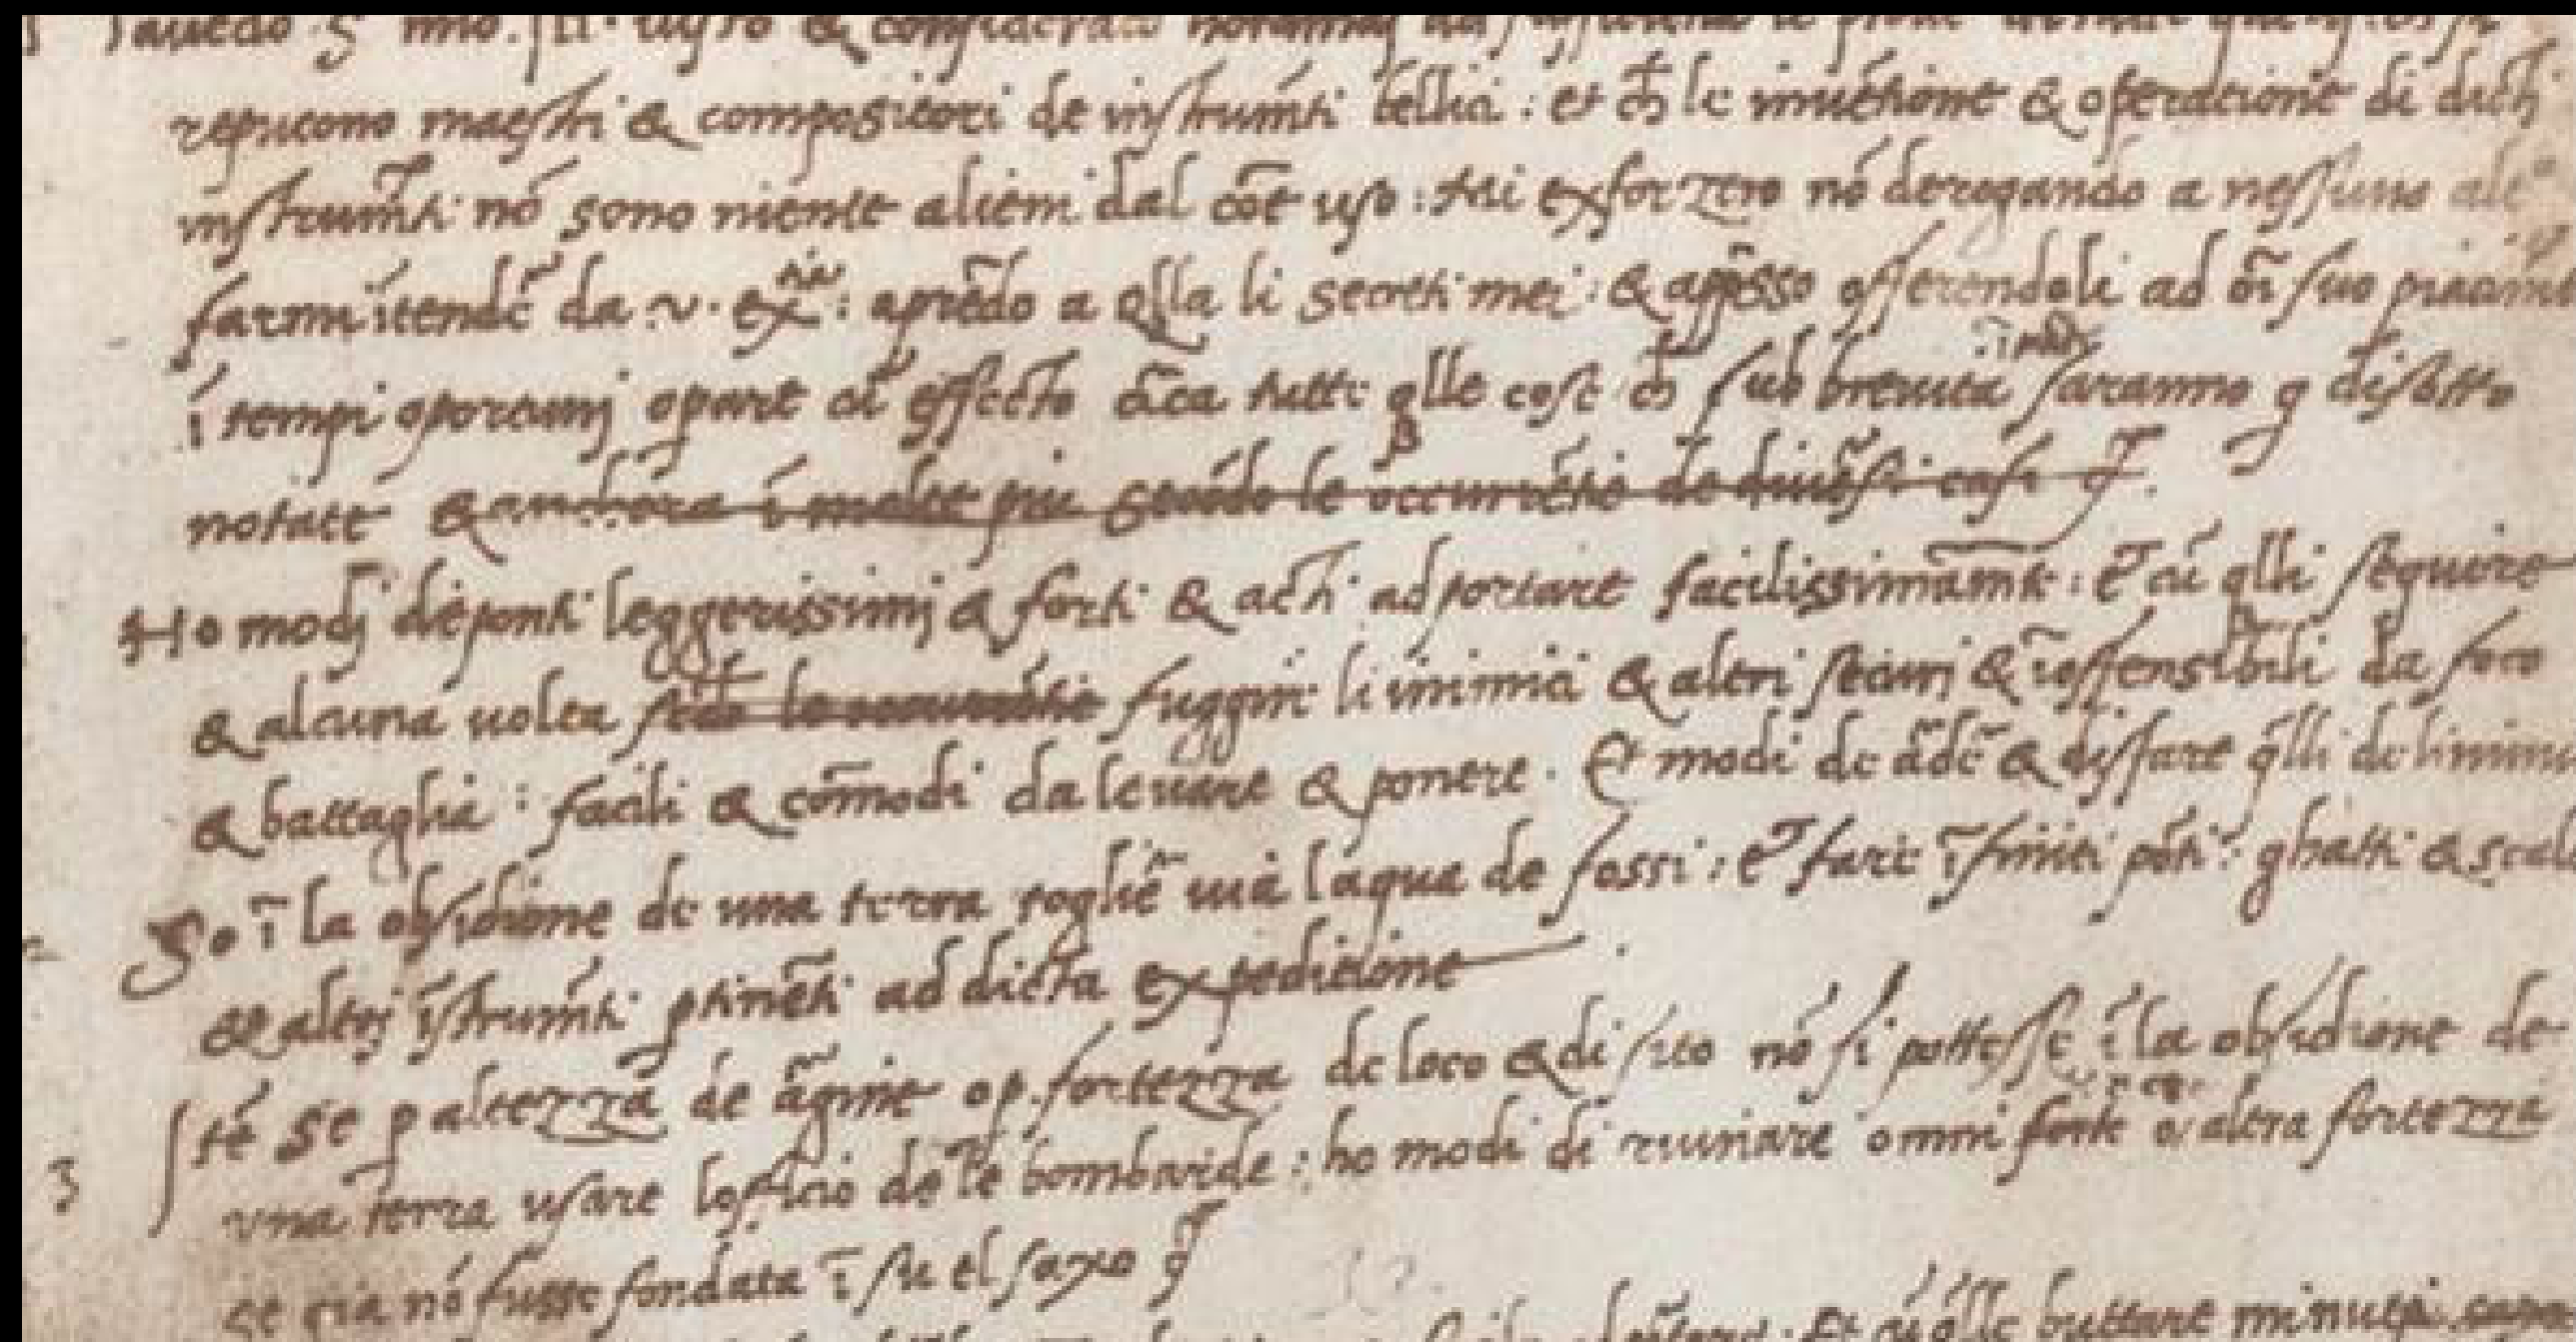 havedo S mio Ill. visto & considerato
reputono maestri & compositori de instrumti bellici: et ch le inuētione & operatione di dicti
instrumti nō sono niente alieni dal cōe uso: Mi exforzero nō derogando a nessuno alt°
farmi ītendē da v. extia: aprēdo a qlla li secreti mei: & appsso offerendoli ad oī suo piacimē
ī tempi oportunj operare cū effecto circa tutte qlle cose ch sub breuita ī parte saranno q disotto
notate & anchora ī molte piu secōdo le occurrētie de diuersi casi &
Ho modj de ponti leggerissimj & forti & acti ad portare facilissimamte: et cū qlli seguire
& alcuna uolta secōdo le occurrētie fuggire li inimici & altri securj & īoffensibili da foco
& battaglia: facili & cōmodi da leuare & ponere. Et modi de ardē & disfare qlli de linimi
So ī la obsidione de una terra togliē uia laqua de fossi: et fare īfiniti pōti: ghatti & scale
& altrj īstrumti ptinēti ad dicta expeditione.
3 Itē se p altezza de argine o p fortezza de loco & di sito nō si pottesse ī la obsidione de
vna terra usare loficio de le bombarde: ho modi di ruinare omni forte o altra fortezza
se gia nō fusse fondata ī su el saxo &
Et cū qlle buttare minuti